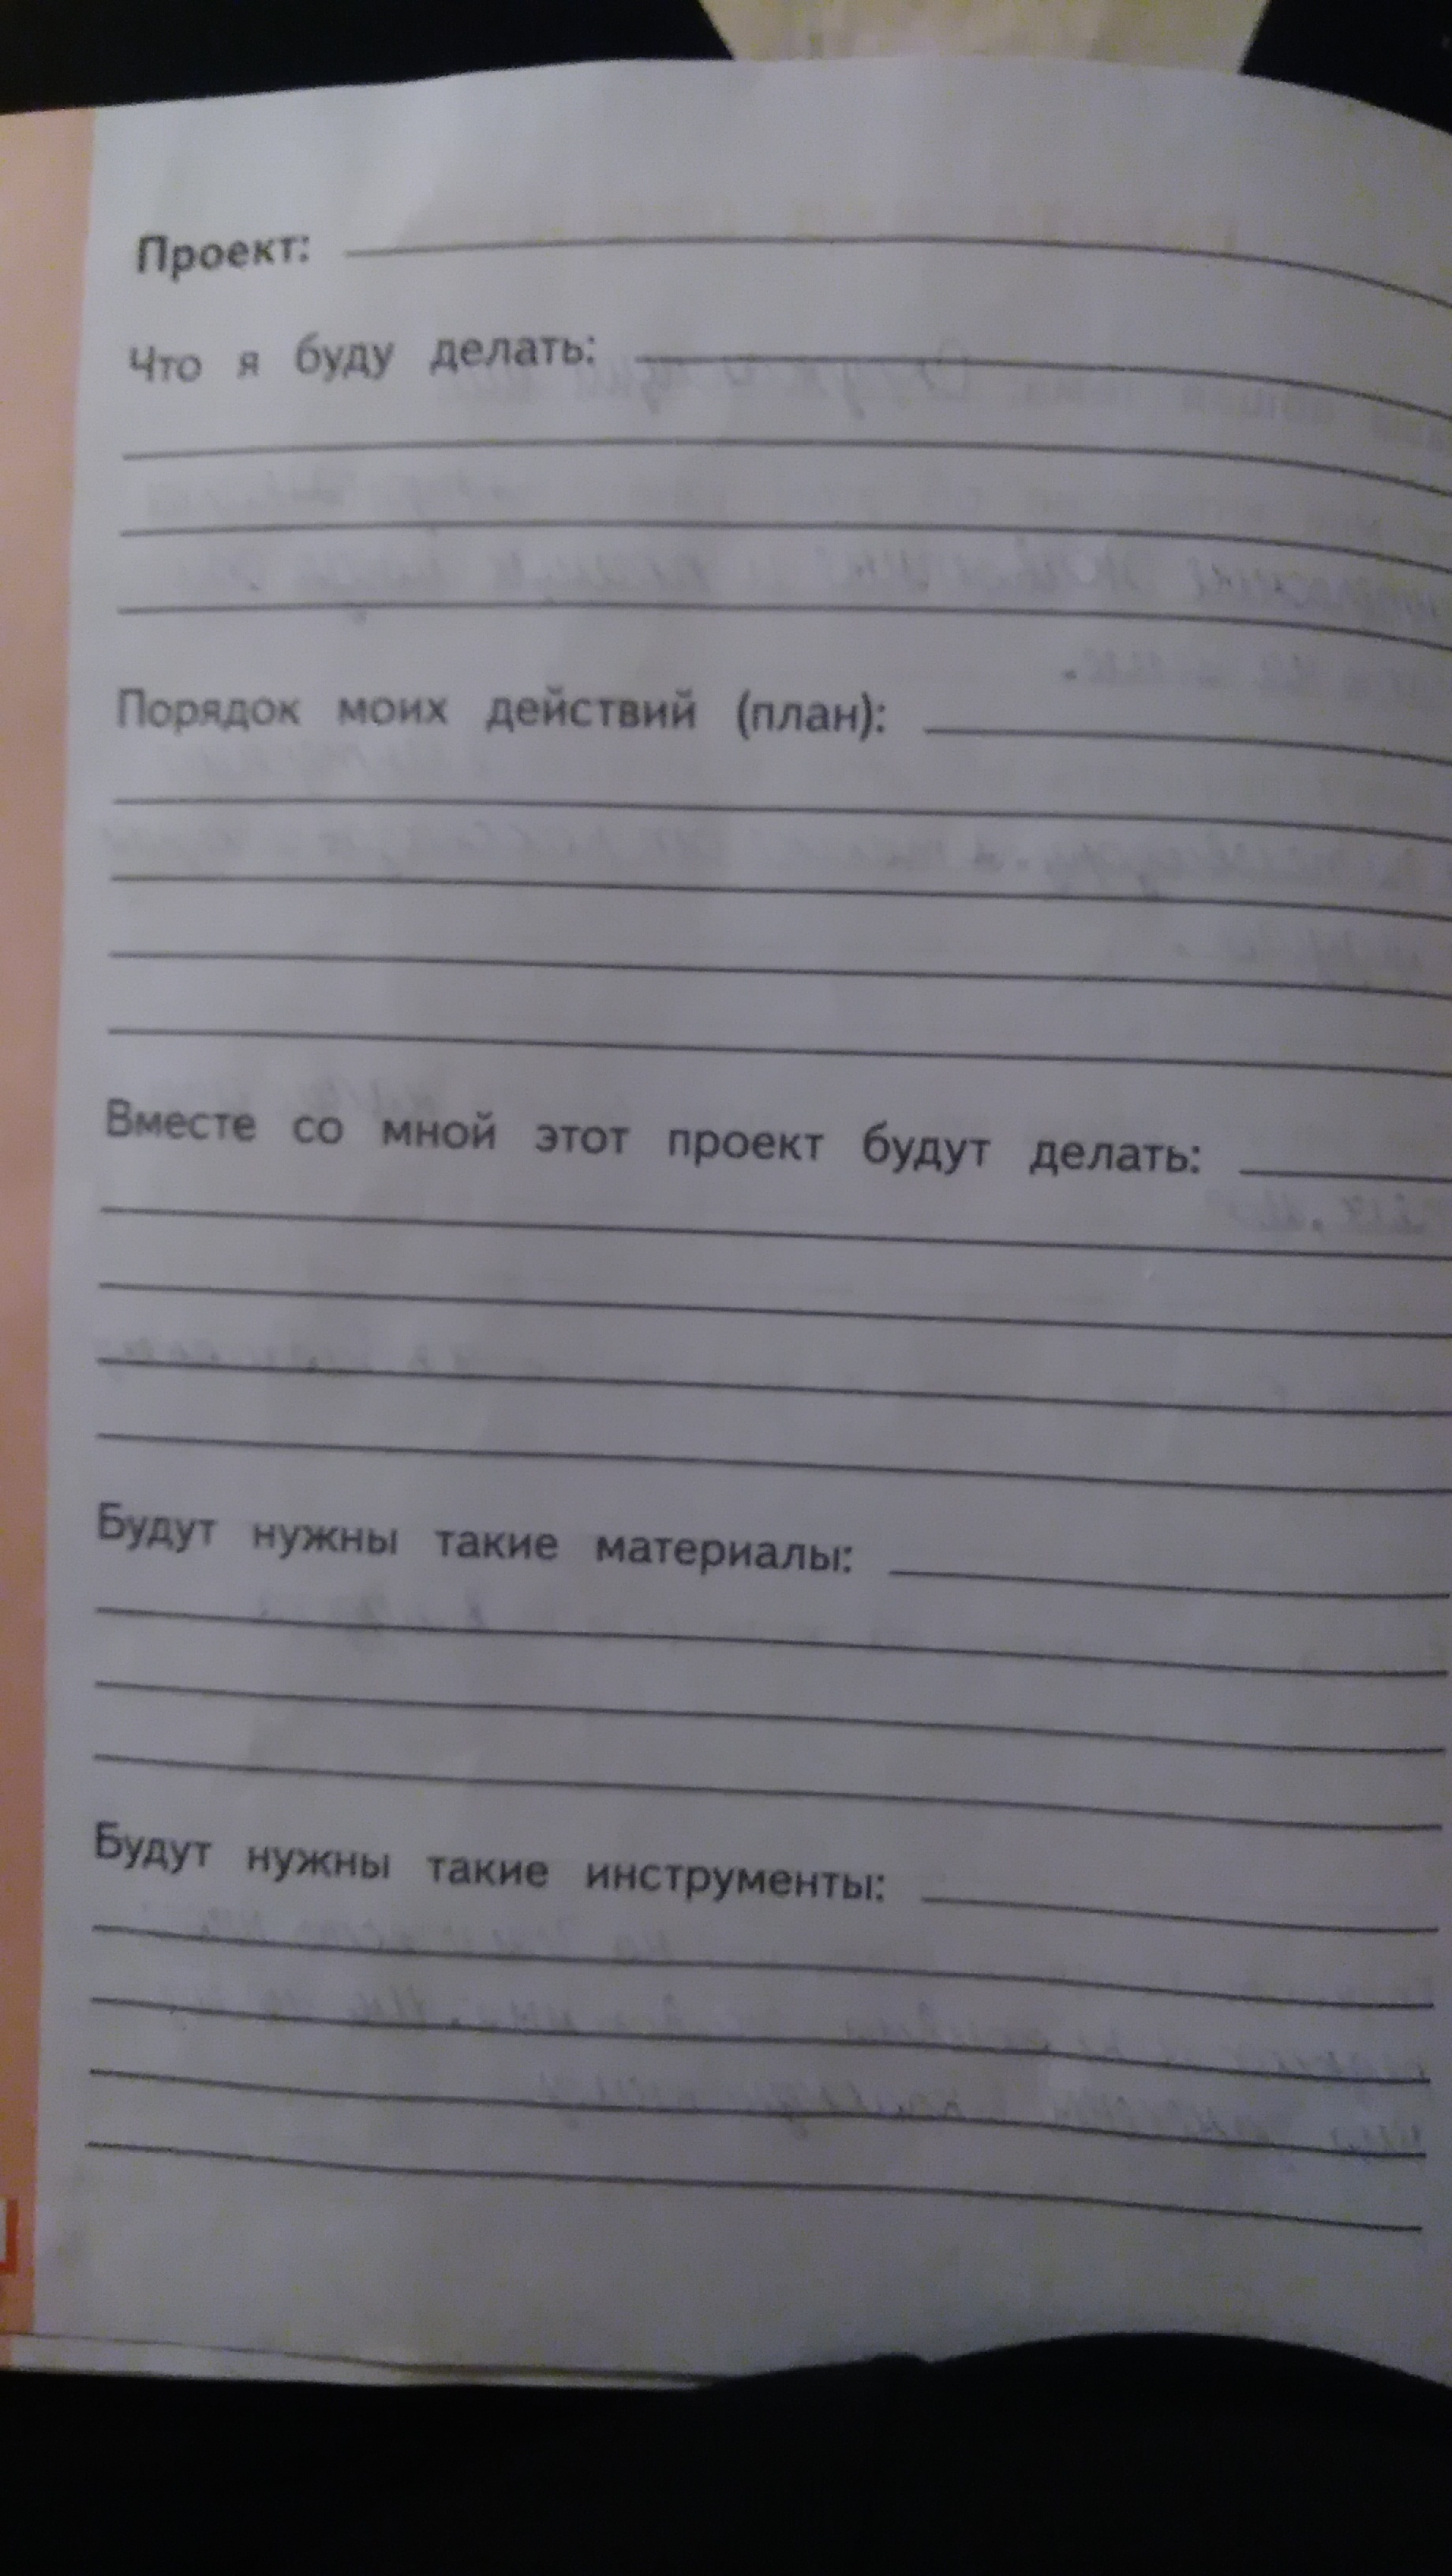 Проект:
Что я буду делать:
Порядок моих действий (план):
Вместе со мной этот проект будут делать:
Будут нужны такие материалы:
Будут нужны такие инструменты: